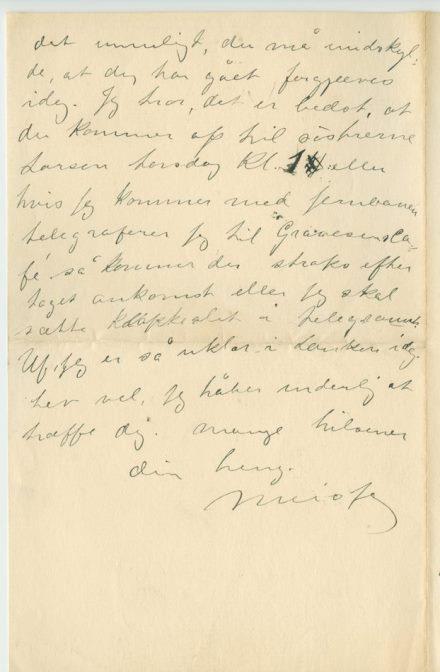 det umuligt, du må undskyl-
de, at du har gået forgjæves
idag. Jeg tror, det er bedst, at
du kommer op til søstrerne
Larsen torsdag Kl. eller
hvis jeg kommer med jernbanen
telegraferer jeg til Græsens Ca-
fé så kommer du straks efter
toget ankomst eller jeg skal
sætte klokkeslet i telegrammet.
Uf, jeg er så uklar i tanken idag.
Lev vel, jeg håber inderlig at
træffe dig. mange hilsener
din heng.